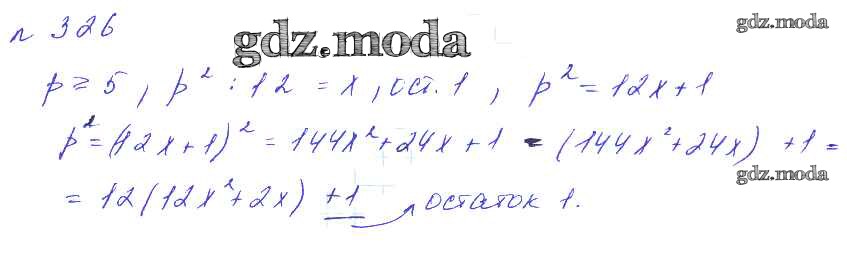 № 326
gdz.moda
gdz.moda
p ≥ 5, p² : 12 = x, ост. 1, p² = 12x + 1
p² = (12x + 1)² = 144x² + 24x + 1 = (144x² + 24x) + 1 =
gdz.moda
= 12(12x² + 2x) + 1 → остаток 1.